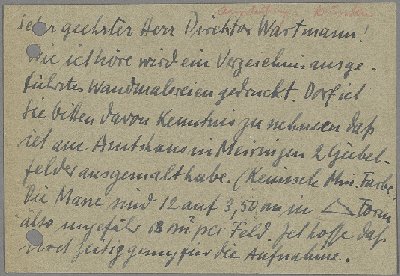 Sehr geehrter Herr Direktor Wartmann!
Wie ich höre wird ein Verzeichnis ausge-
führter Wandmalereien gedruckt. Darf ich
Sie bitten davon Kenntnis zu nehmen daß
ich am Amtshaus in Meiringen 2 Giebel-
felder ausgemalt habe. (Keimsche Min. Farbe.
Die Masse sind 12 auf 3,50 m in Form
also ungefähr 18 m² per Feld. Ich hoffe daß
noch zeitig genug für die Aufnahme.